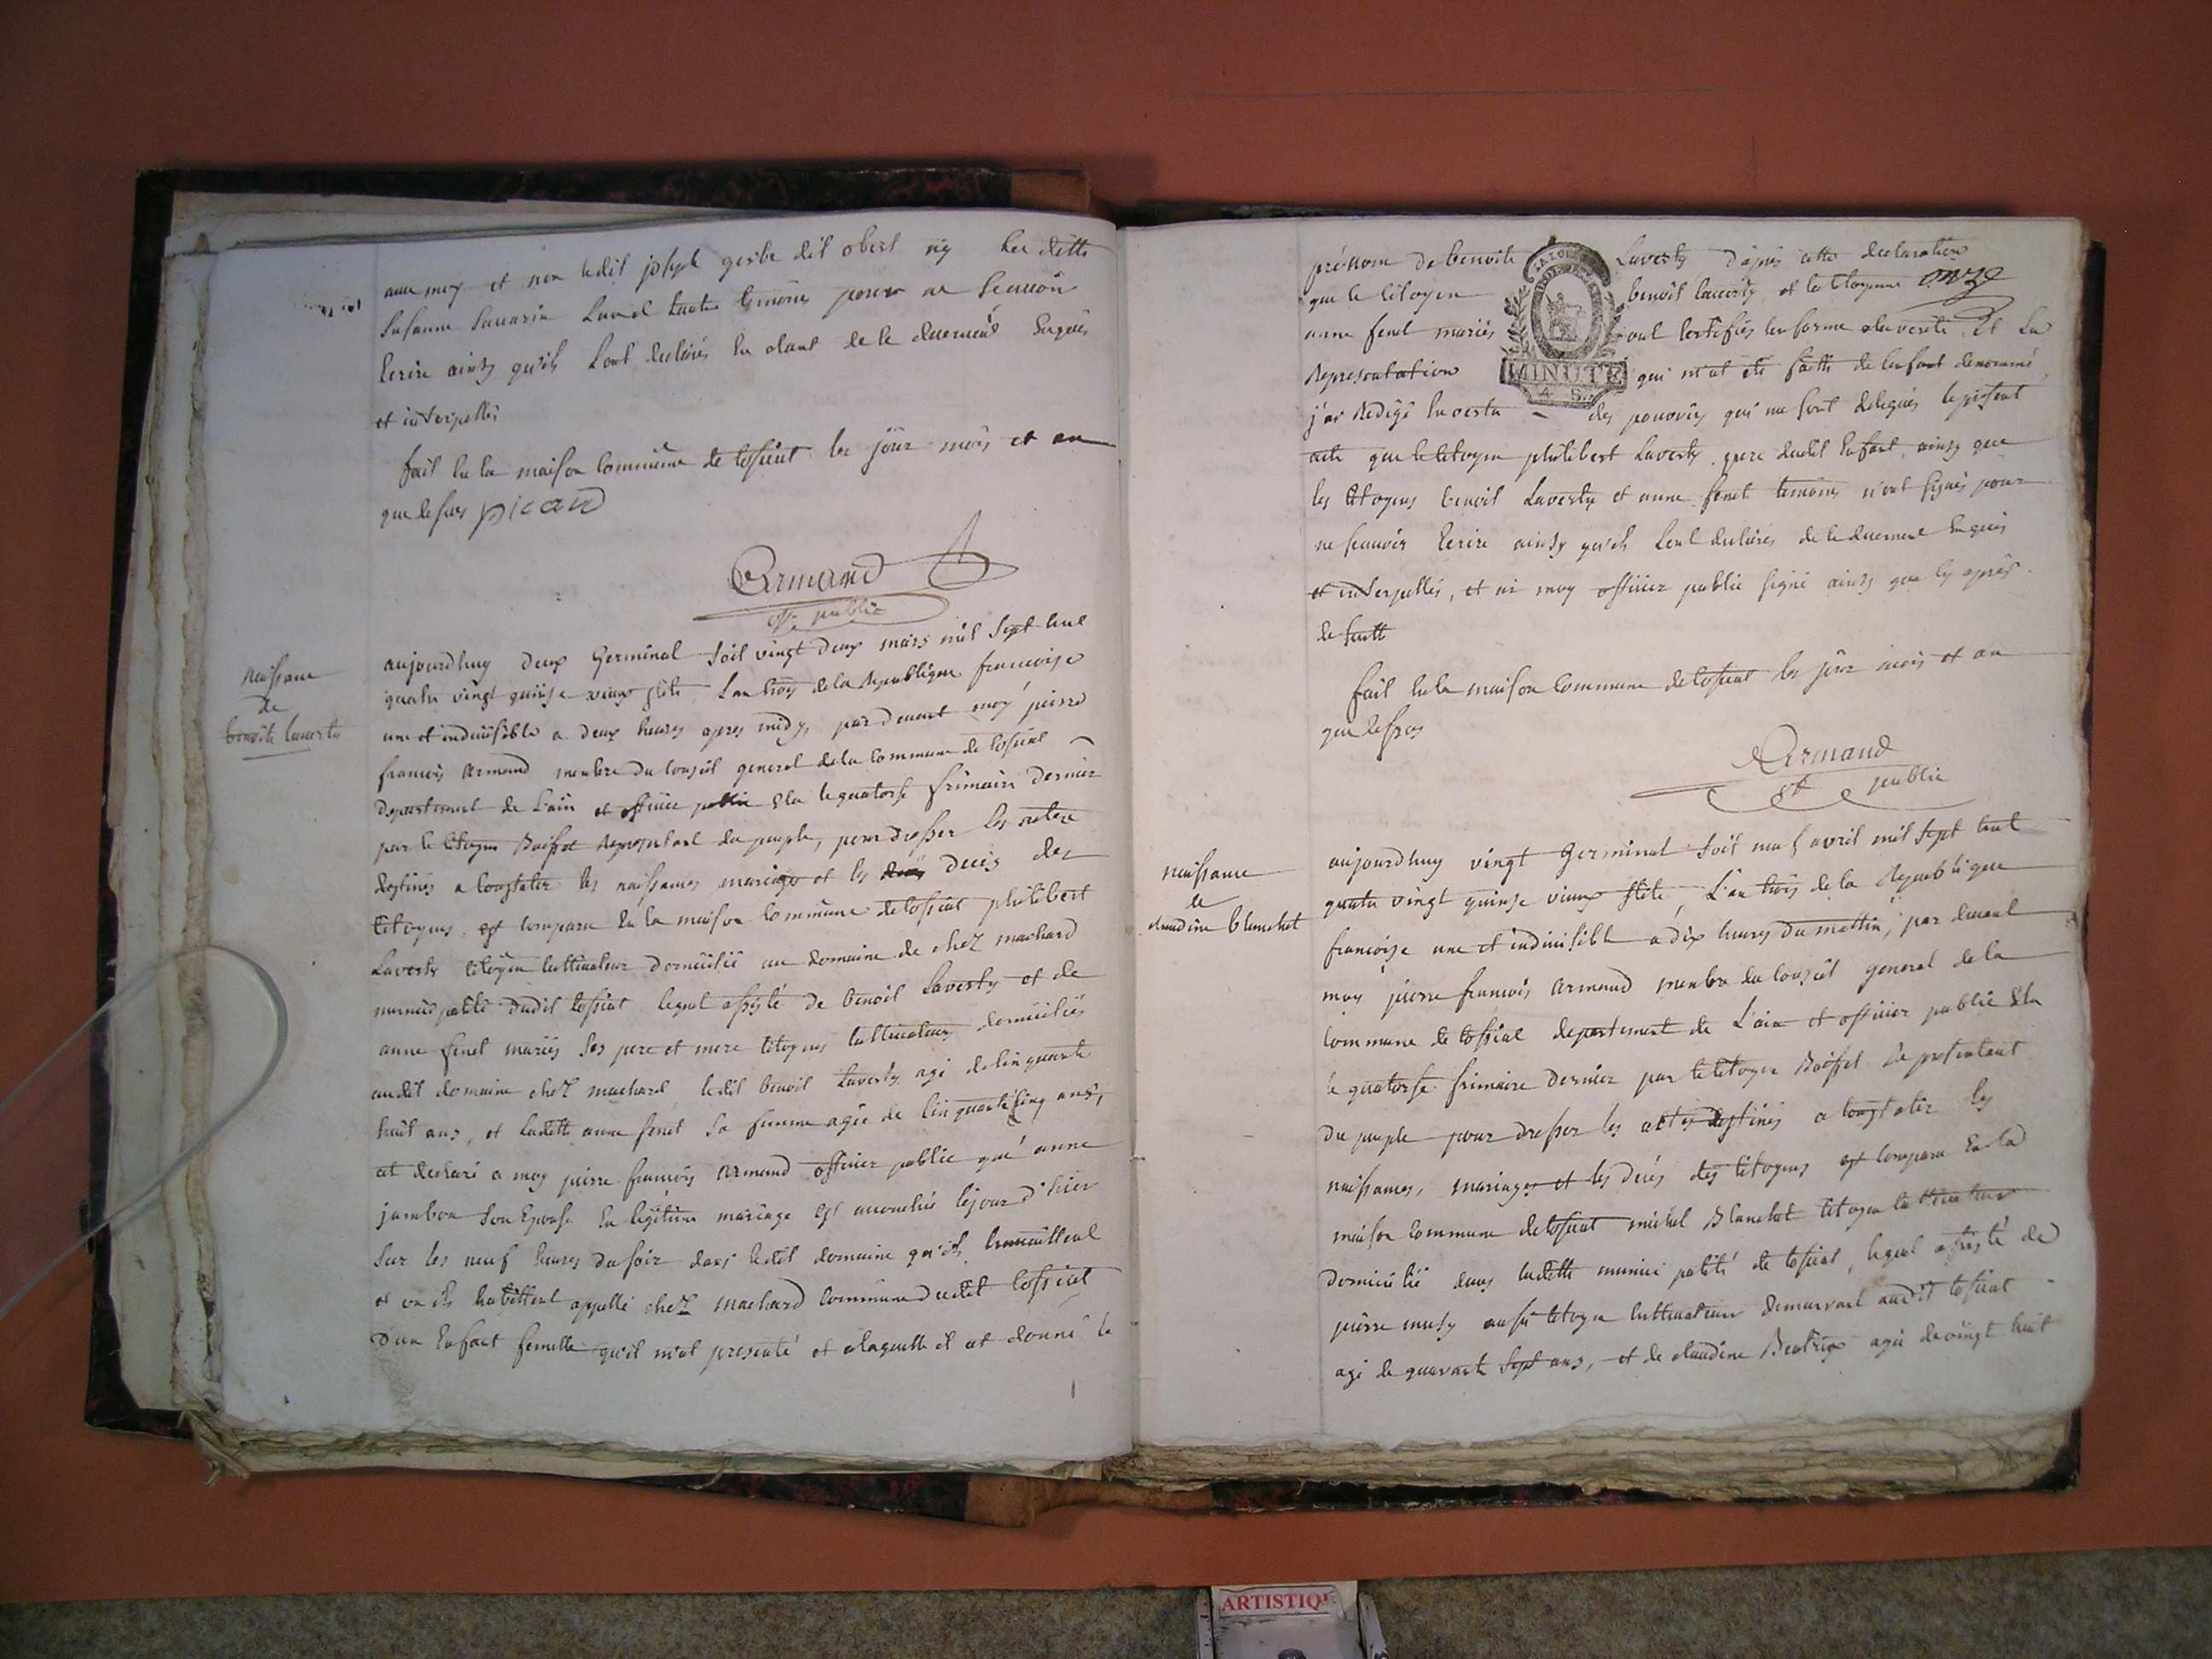 avec moy et non ledit joseph gerbe dit obert ny la ditte
Susanne Savarin Laval tante temoins pour ne Scavoir
Ecrire ainsy qu'ils Lont declarés En etant de le duement Enquis
et interpellés
fait En la maison Commune de tossiat les jour mois et an
que dessus picard
Armand
off. public
naissance
de
benoite laverty
aujourdhuy deux Germinal soit vingt deux mars mil sept cent
quatre vingt quinse vieux stile Lan trois de la Republique francoise
une et indivisible a deux heures apres midy, par devant moy pierre
francois Armand membre du Conseil general de la Commune de tossiat
departement de L'ain et officier public Elu le quatorse frimaire dernier
par le Citoyen Boisset Representant du peuple, pour dresser les actes
destinés a Constater les naissances mariages et les decés des
Citoyens, est comparu En la maison Commune de tossiat philibert
Laverty Citoyen Cultivateur domicilié au domaine de chez machard
municipalité dudit tossiat lequel assisté de benoit Laverty et de
anne fenet mariés ses pere et mere Citoyens Cultivateurs domiciliés
audit domaine chez machard, ledit benoit Laverty agé de Cinquante
huit ans, et Laditte anne fenet sa femme agée de Cinquante Cinq ans,
at declaré a moy pierre francois Armand officier public que anne
jambon son Epouse En legitime mariage est accouchée le jour d'hier
sur les neuf heures du soir dans ledit domaine qu'ils travaillent
et ou ils habittent appellé chez machard Commune dudit tossiat
d'un Enfant femelle qu'il m'at presenté et a laquelle il at donné le
prénom de benoite Laverty d'apres cette declaration
que le Citoyen benoit laverty et la Citoyenne onze
anne fenet mariés ont Certifiés Conforme a la verité Et La
Representation qui m'at été faitte de lenfant denommé,
MINUTE
4 S.
j'ai Redigé En vertu des pouvoirs qui me sont delegués le present
acte que le Citoyen philibert Laverty pere dudit Enfant, ainsy que
les Citoyens benoit Laverty et anne fenet temoins n'ont signés pour
ne scavoir Ecrire ainsy qu'ils Lont declarés de le duement Enquis
et interpellés, et ai moy officier public signé ainsy que cy après
de suitte
fait En la maison Commune de tossiat les jour mois et an
que dessus
Armand
off. public
naissance
de
claudine blanchet
aujourdhuy vingt Germinal soit neuf avril mil sept cent
quatre vingt quinse vieux stile, L'an trois de la Republique
francoise une et indivisible a dix heures du mattin, par devant
moy pierre francois Armand membre du Conseil general de la
Commune de tossiat departement de L'ain et officier public Elu
le quatorse frimaire dernier par le Citoyen Boisset Representant
du peuple pour dresser les actes destinés a Constater les
naissances, mariages et les decés des Citoyens est Comparu En la
maison Commune de tossiat michel Blanchet Citoyen Cultivateur
domicilié dans laditte municipalité de tossiat, lequel assisté de
pierre musy aussi Citoyen Cultivateur demeurant audit tossiat
agé de quarante sept ans, et de claudine Beatrix agée de vingt huit
ARTISTIQUE